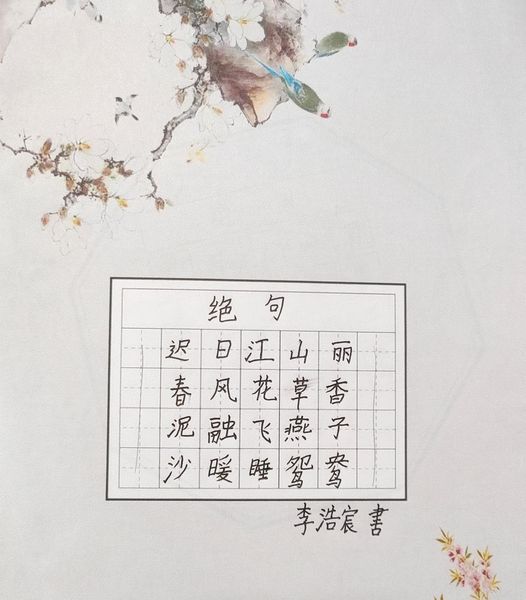 绝句
迟日江山丽
春风花草香
泥融飞燕子
沙暖睡鸳鸯
李浩宸书